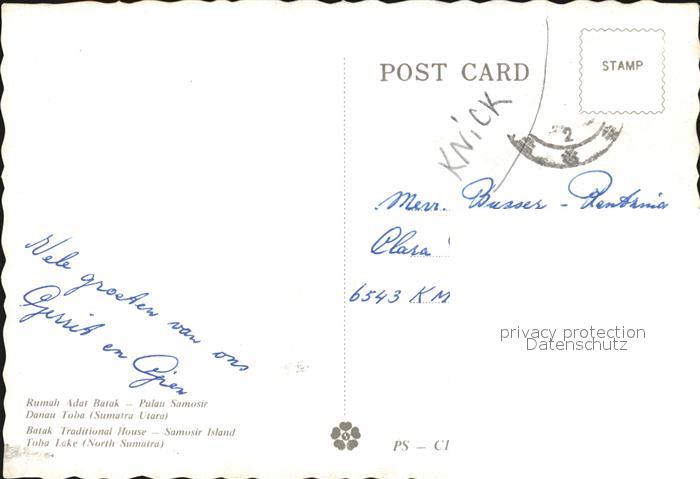 POST CARD
STAMP
KNICK
2
Mevr. Busser -
Clara
6543 KM
privacy protection
Datenschutz
Vele groeten van ons
Gerrit en
Rumah Adat Batak — Pulau Samosir
Danau Toba (Sumatra Utara)
Batak Traditional House — Samosir Island
Toba Lake (North Sumatra)
PS — C